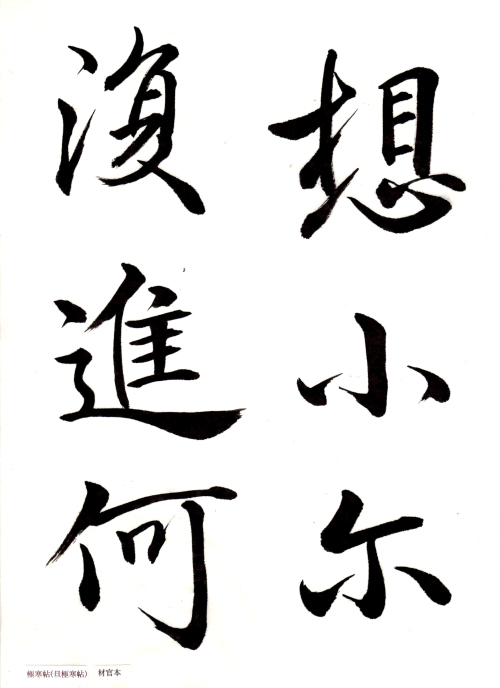 想小尔
復進何
極寒帖(旦極寒帖) 材官本